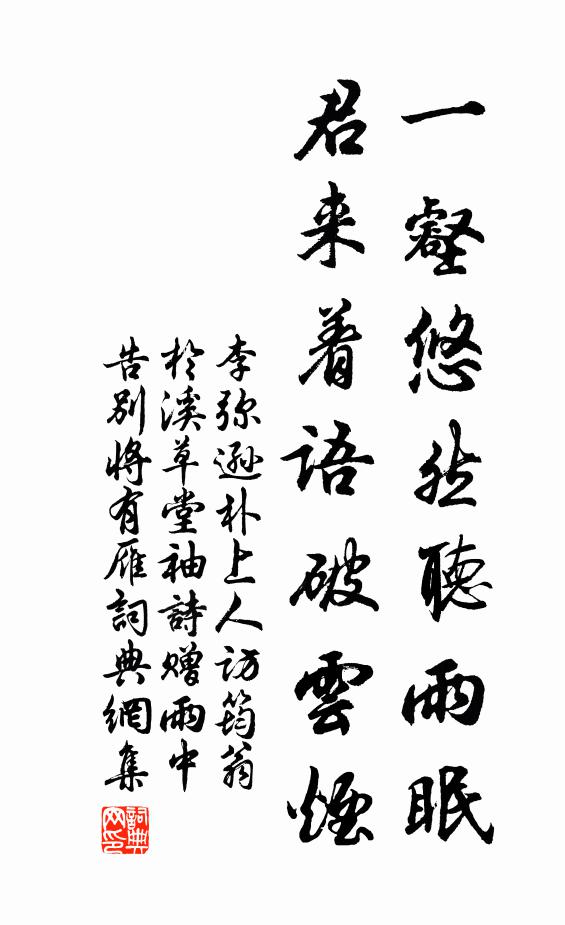 一壑悠然聽雨眠
君来着语破雲煙
李弥遜朴上人访筠翁
於溪草堂袖詩贈雨中
告别将有雁詞典網集
詞典网印